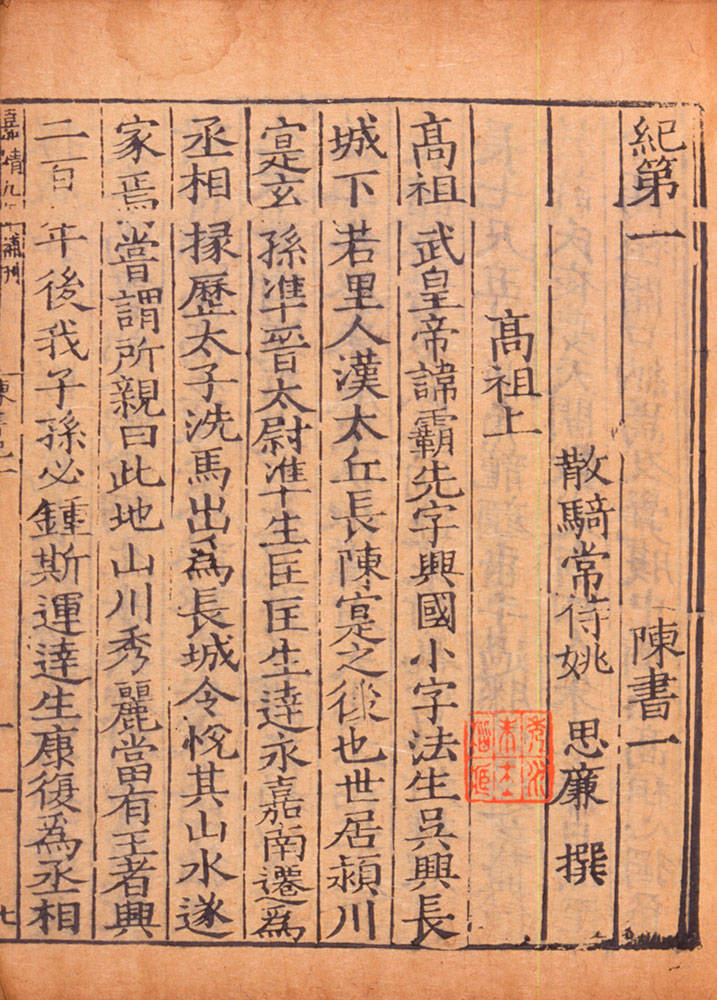 紀第一 陳書一
散騎常侍姚 思廉 撰
高祖上
髙祖武皇帝諱霸先字興國小字法生吳興長
城下若里人漢太丘長陳寔之後也世居潁川
寔玄孫準晉太尉準生匡匡生逹永嘉南遷為
丞相掾歷太子洗馬出爲長城令悅其山水遂
家焉嘗謂所親曰此地山川秀麗當有王者興
二百年後我子孫必鍾斯運逹生康復爲丞相
嘉靖九年補刊